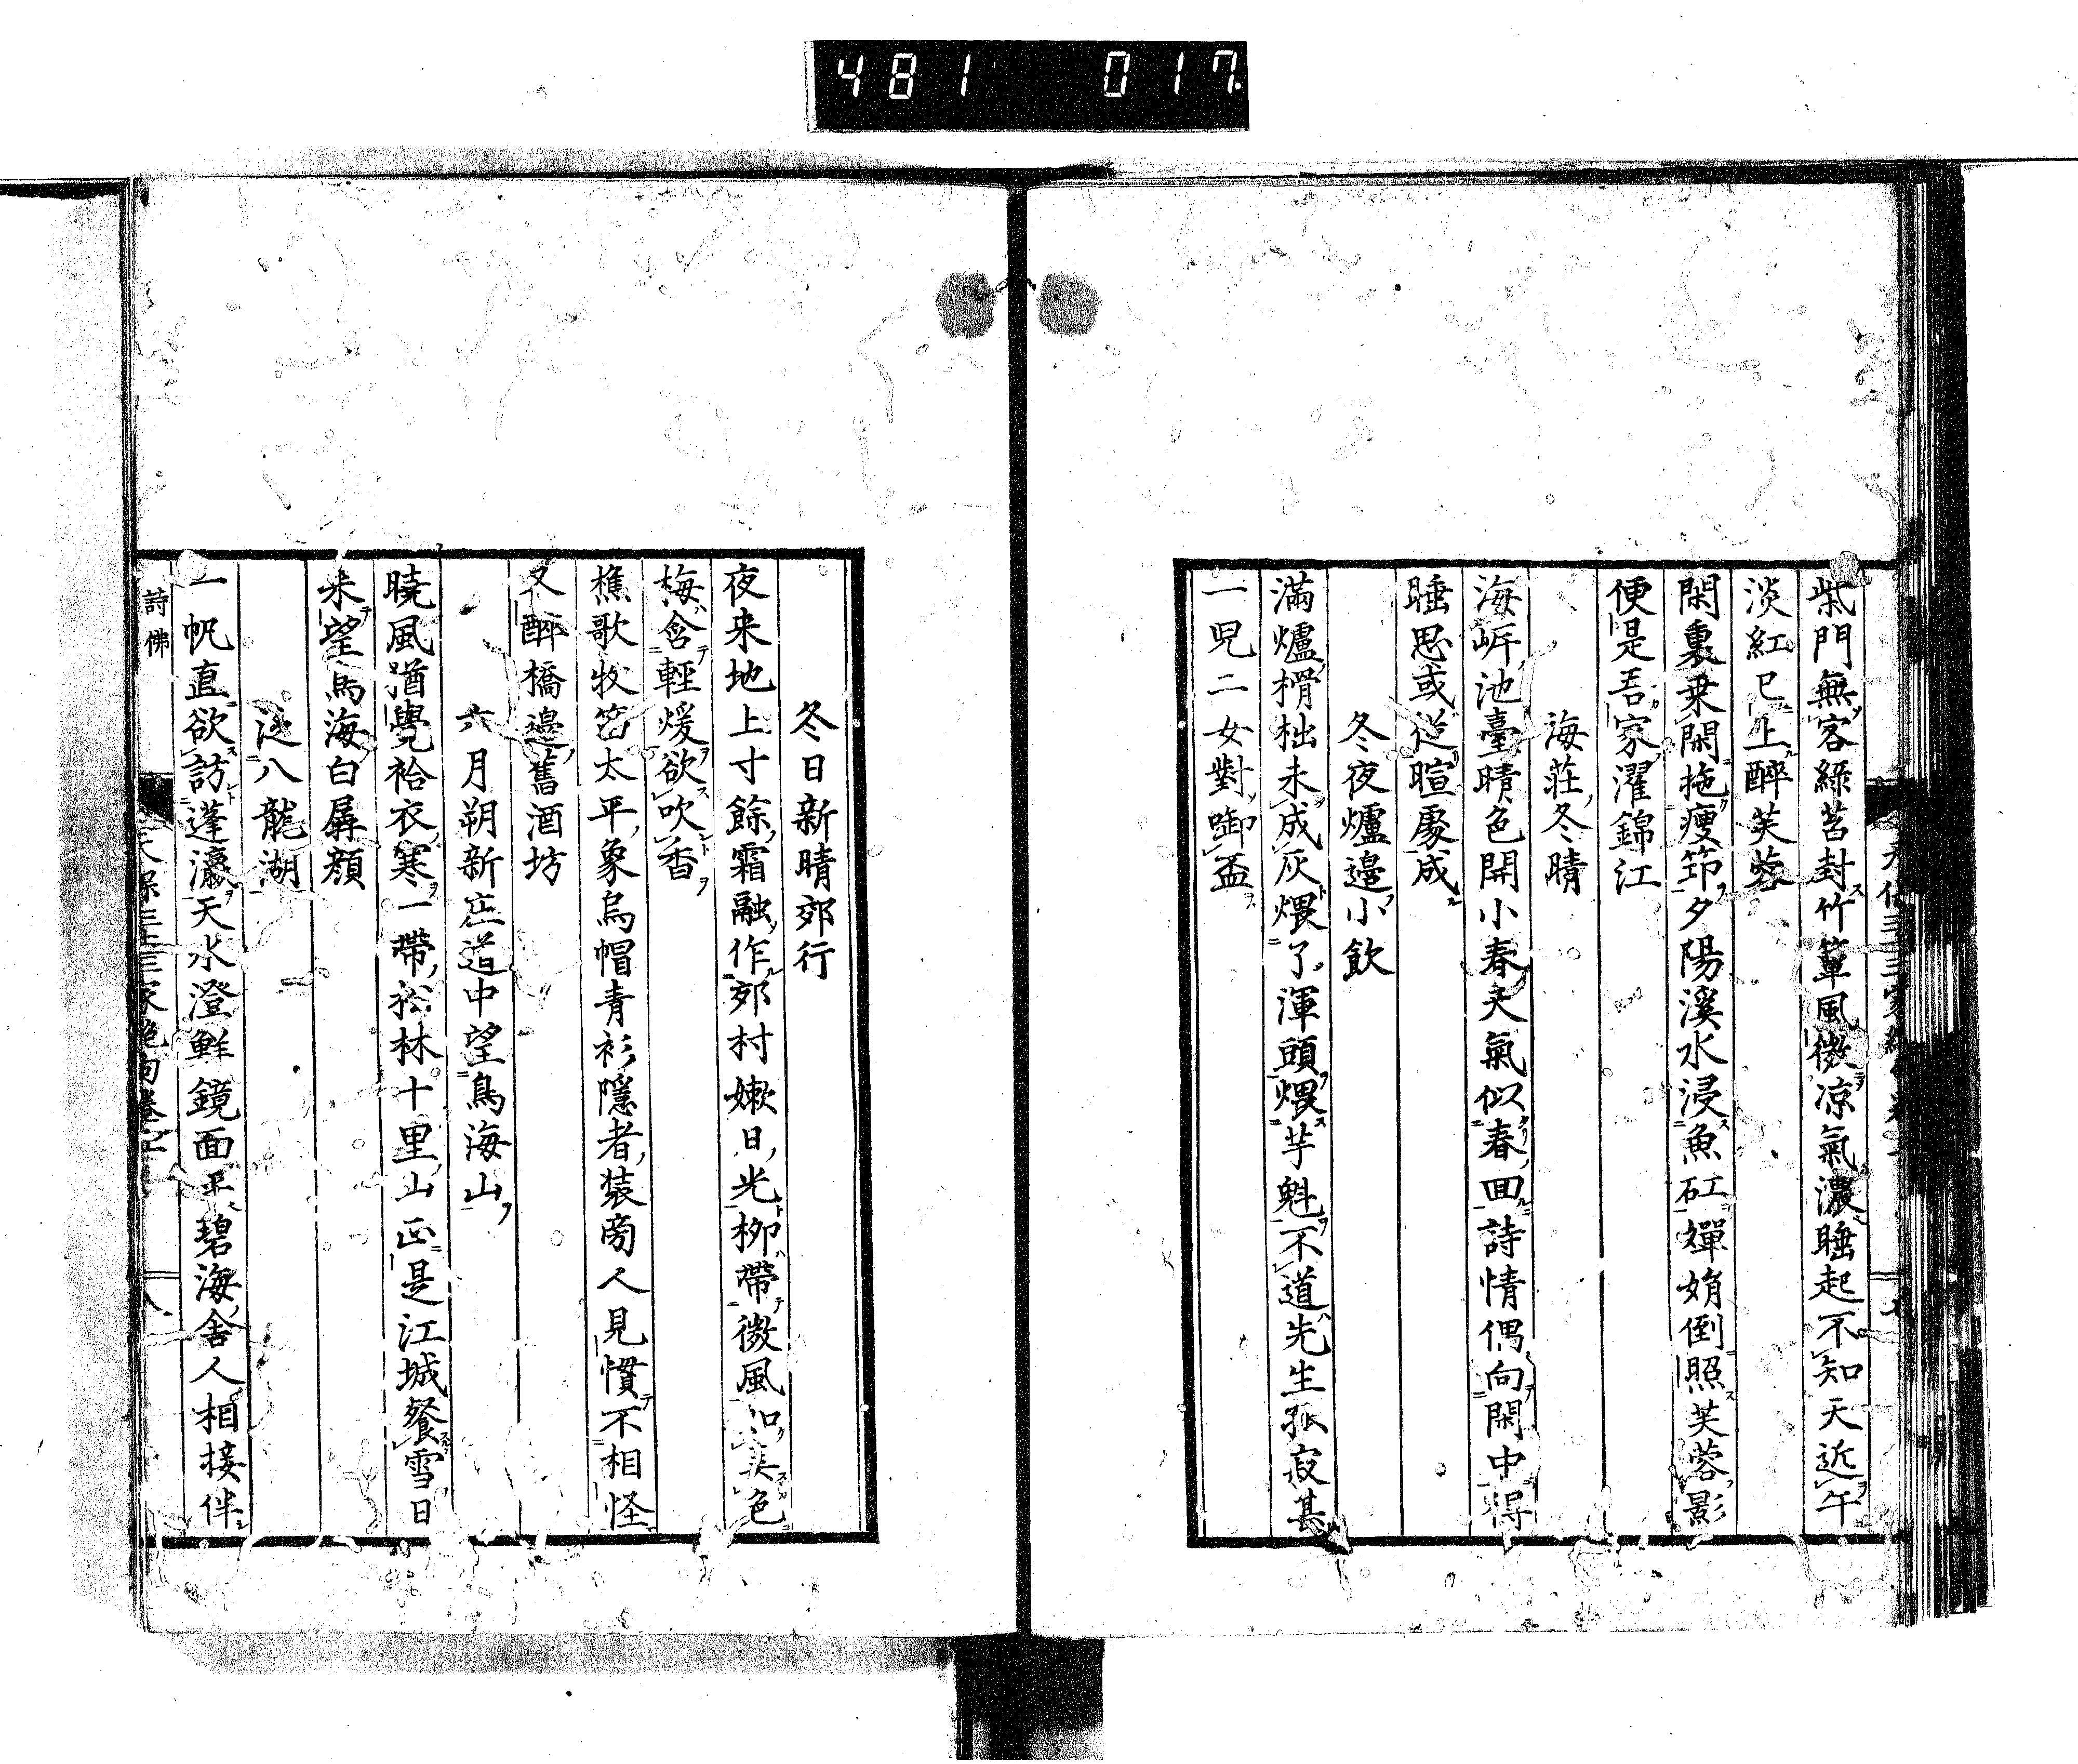 481 017
柴門無客綠苔封竹簟風微凉氣濃睡起不知天近午
淡紅已上醉芙蓉
閑裏乗閑拖瘦筇夕陽溪水浸魚矼嬋娟倒照芙蓉影
便是吾家濯錦江
海莊冬晴
海岍池臺晴色開小春天氣似春回詩情偶向閑中得
睡思或從暄處成
冬夜爐邊小飲
滿爐榾柮未成灰煨了渾頭煨芋魁不道先生孤寂甚
一兒二女對啣盃
冬日新晴郊行
夜来地上寸餘霜融作郊村嫩日光柳帶微風如美色
梅含輕煖欲吹香
樵歌牧笛太平象烏帽青衫隱者装旁人見慣不相怪
又醉橋邊舊酒坊
六月朔新庄道中望鳥海山
曉風猶覺袷衣寒一帶松林十里山正是江城餐雪日
来望鳥海白孱顔
泛八龍湖
一帆直欲訪蓬瀛天水澄鮮鏡面平碧海舎人相接伴
詩佛
天保三十三家絶句卷
八